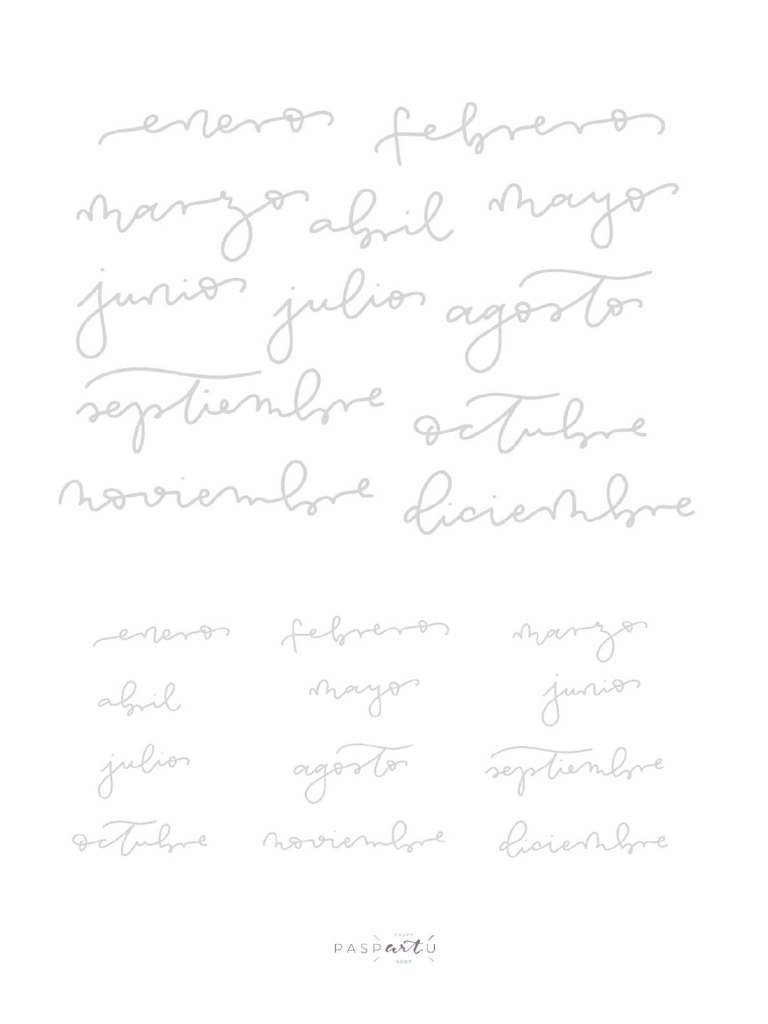 enero febrero
marzo abril mayo
junio julio agosto
septiembre octubre
noviembre diciembre
enero febrero marzo
abril mayo junio
julio agosto septiembre
octubre noviembre diciembre
CRAFT
PASPartÚ
SHOP